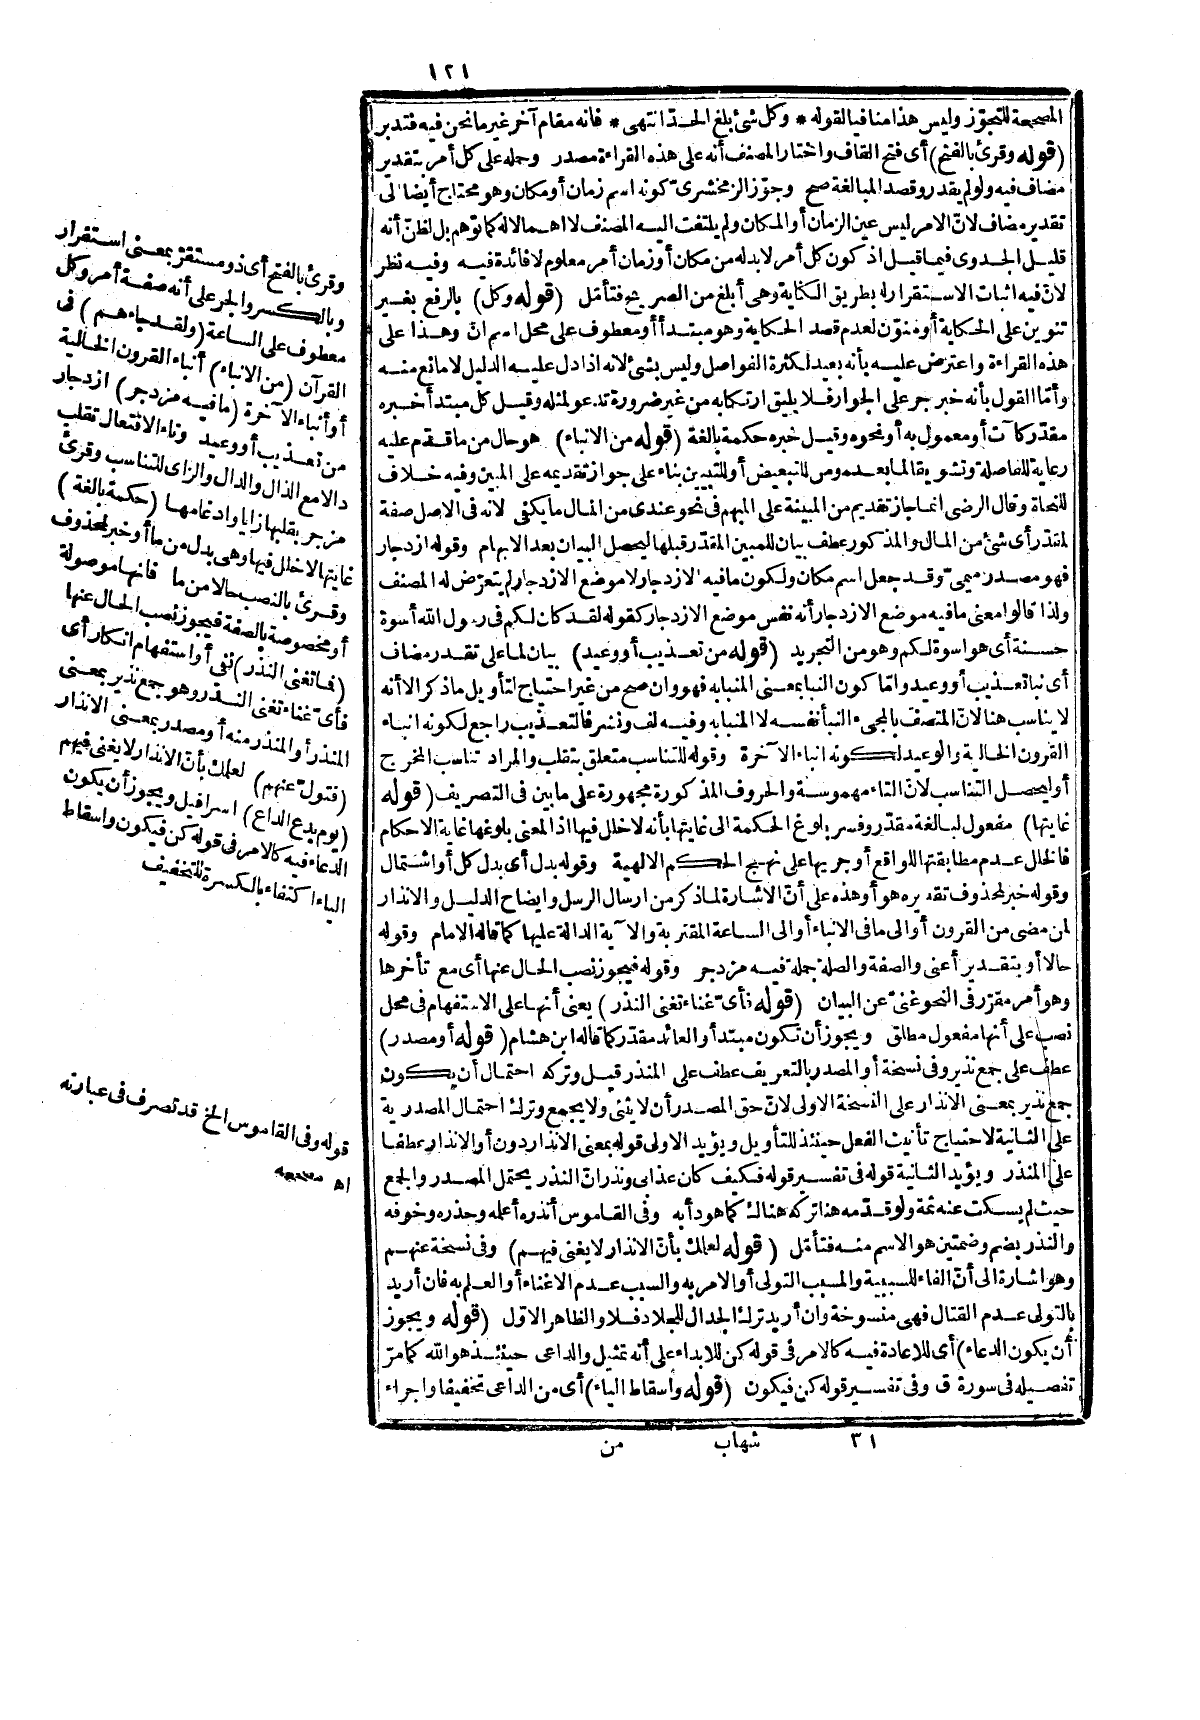 ١٢١
المصححة للتجوّز وليس هذا منافيا لقوله * وكل شئ بلغ الحدّ انتهى * فانه مقام آخر غير ما نحن فيه فتدبر
(قوله وقرئ بالفتح) أى فتح القاف واختار المصنف أنه على هذه القراءة مصدر وحمله على كل أمر بتقدير
مضاف فيه ولو لم يقدر وقصد المبالغة صح وجوّز الزمخشرىّ كونه اسم زمان أو مكان وهو محتاج أيضا الى
تقدير مضاف لانّ الامر ليس عين الزمان أو المكان ولم يلتفت اليه المصنف لا اهمالا له كما توهم بل لظنّ أنه
قليل الجدوى فيما قيل اذ كون كل أمر لا بد له من مكان أو زمان أمر معلوم لا فائدة فيه وفيه نظر
لانّ فيه اثبات الاستقرار له بطريق الكناية وهى أبلغ من الصريح فتأمّل (قوله وكل) بالرفع بغير
تنوين على الحكاية أو منوّن لعدم قصد الحكاية وهو مبتدأ أو معطوف على محل اسم انّ وهذا على
هذه القراءة واعترض عليه بأنه بعيد لكثرة الفواصل وليس بشئ لانه اذا دل عليه الدليل لا مانع منه
وأمّا القول بأنه خبر جر على الجوار فلا يليق ارتكابه من غير ضرورة تدعو لمثله وقيل كل مبتدأ خبره
مقدّر كآت أو معمول به أو نحوه وقيل خبره حكمة بالغة (قوله من الانباء) هو حال من ما قدم عليه
رعاية للفاصلة وتشويقا لما بعده ومن للتبعيض أو للتبيين بناء على جواز تقديمه على المبين وفيه خلاف
للنحاة وقال الرضى انما جاز تقديم من المبينة على المبهم فى نحو عندى من المال ما يكفى لانه فى الاصل صفة
لمقدّر أى شئ من المال والمذكور عطف بيان للمبين المقدّر قبلها ليحصل البيان بعد الابهام وقوله ازدجار
فهو مصدر ميمىّ وقد جعل اسم مكان ولكون ما فيه الازدجار لا موضع الازدجار لم يتعرّض له المصنف
ولذا قالوا معنى ما فيه موضع الازدجار أنه نفس موضع الازدجار كقوله لقد كان لكم فى رسول الله أسوة
حسنة أى هو اسوة لكم وهو من التجريد (قوله من تعذيب أو وعيد) بيان لما على تقدير مضاف
أى نبا تعذيب أو وعيد وامّا كون النبا بمعنى المنبا به فهو وان صح من غير احتياج لتأويل ماذكر الا أنه
لا يناسب هنا لانّ المتصف بالمجىء النبأ نفسه لا المنبا به وفيه لف ونشر فالتعذيب راجع لكونه انباء
القرون الخالية والوعيد لكونه انباء الآخرة وقوله للتناسب متعلق بتقلب والمراد تناسب المخرج
أو ليحصل التناسب لانّ التاء مهموسة والحروف المذكورة مجهورة على ما بين فى التصريف (قوله
غايتها) مفعول لبالغة مقدّر وفسر بلوغ الحكمة الى غايتها بأنه لا خلل فيها اذ المعنى بلوغها غاية الاحكام
فالخلل عدم مطابقتها للواقع أو جريها على نهج الحكم الالهية وقوله بدل أى بدل كل أو اشتمال
وقوله خبر لمحذوف تقديره هو أو هذه على أنّ الاشارة لماذكر من ارسال الرسل وايضاح الدليل والانذار
لمن مضى من القرون أو الى ما فى الانباء أو الى الساعة المقتربة والآية الدالة عليها كما قاله الامام وقوله
حالا أو بتقدير أعنى والصفة والصلة جملة فيه مزدجر وقوله فيجوز نصب الحال عنها أى مع تأخرها
وهو أمر مقرّر فى النحو غنىّ عن البيان (قوله فأىّ غناء تغنى النذر) يعنى أنها على الاستفهام فى محل
نصب على أنها مفعول مطلق ويجوز أن تكون مبتدأ والعائد مقدّر كما قاله ابن هشام (قوله أو مصدر)
عطف على جمع نذير وفى نسخة أو المصدر بالتعريف عطف على المنذر قيل وتركه احتمال أن يكون
جمع نذير بمعنى الانذار على النسخة الاولى لانّ حق المصدر أن لا يثنى ولا يجمع وترك احتمال المصدرية
على الثانية لاحتياج تأنيث الفعل حينئذ للتأويل ويؤيد الاولى قوله بمعنى الانذار دون أو الانذار عطفا
على المنذر ويؤيد الثانية قوله فى تفسير قوله فكيف كان عذابى ونذر انّ النذر يحتمل المصدر والجمع
حيث لم يسكت عنه ثمة ولو قدّمه هنا تركه هنالك كما هو دأبه وفى القاموس أنذره أعلمه وحذره وخوفه
والنذر بضم وضمتين هو الاسم منه فتأمّل (قوله لعلمك بأنّ الانذار لا يغنى فيهم) وفى نسخة عنهم
وهو اشارة الى أنّ الفاء للسببية والمسبب التولى أو الامر به والسبب عدم الاغناء أو العلم به فان أريد
بالتولى عدم القتال فهى منسوخة وان أريد ترك الجدال للجلاد فلا والظاهر الاوّل (قوله ويجوز
أن يكون الدعاء) أى للاعادة فيه كالامر فى قوله كن للابداء على أنه تمثيل والداعى حينئذ هو الله كما مرّ
تفصيله فى سورة ق وفى تفسير قوله كن فيكون (قوله واسقاط الياء) أى من الداعى تخفيفا واجراء
٣١ شهاب من
وقرئ بالفتح أى ذو مستقرّ بمعنى استقرار
وبالكسر والجر على أنه صفة أمر وكل
معطوف على الساعة (ولقد جاءهم) فى
القرآن (من الانباء) أنباء القرون الخالية
أو أنباء الآخرة (ما فيه مزدجر) ازدجار
من تعذيب أو وعيد وتاء الافتعال تقلب
دالا مع الذال والدال والزاى للتناسب وقرئ
مزجر بقلبها زايا وادغامها (حكمة بالغة)
غايتها لا خلل فيها وهى بدل من ما أو خبر لمحذوف
وقرئ بالنصب حالا من ما فانها موصولة
أو مخصوصة بالصفة فيجوز نصب الحال عنها
(فما تغنى النذر) نفى أو استفهام انكار أى
فأىّ غناء تغنى النذر وهو جمع نذير بمعنى
المنذر أو المنذر منه أو مصدر بمعنى الانذار
(فتولّ عنهم) لعلمك بأنّ الانذار لا يغنى فيهم
(يوم يدع الداع) اسرافيل ويجوز أن يكون
الدعاء فيه كالامر فى قوله كن فيكون واسقاط
الياء اكتفاء بالكسرة للتخفيف
قوله وفى القاموس الخ قد تصرف فى عبارته
اه مصححه